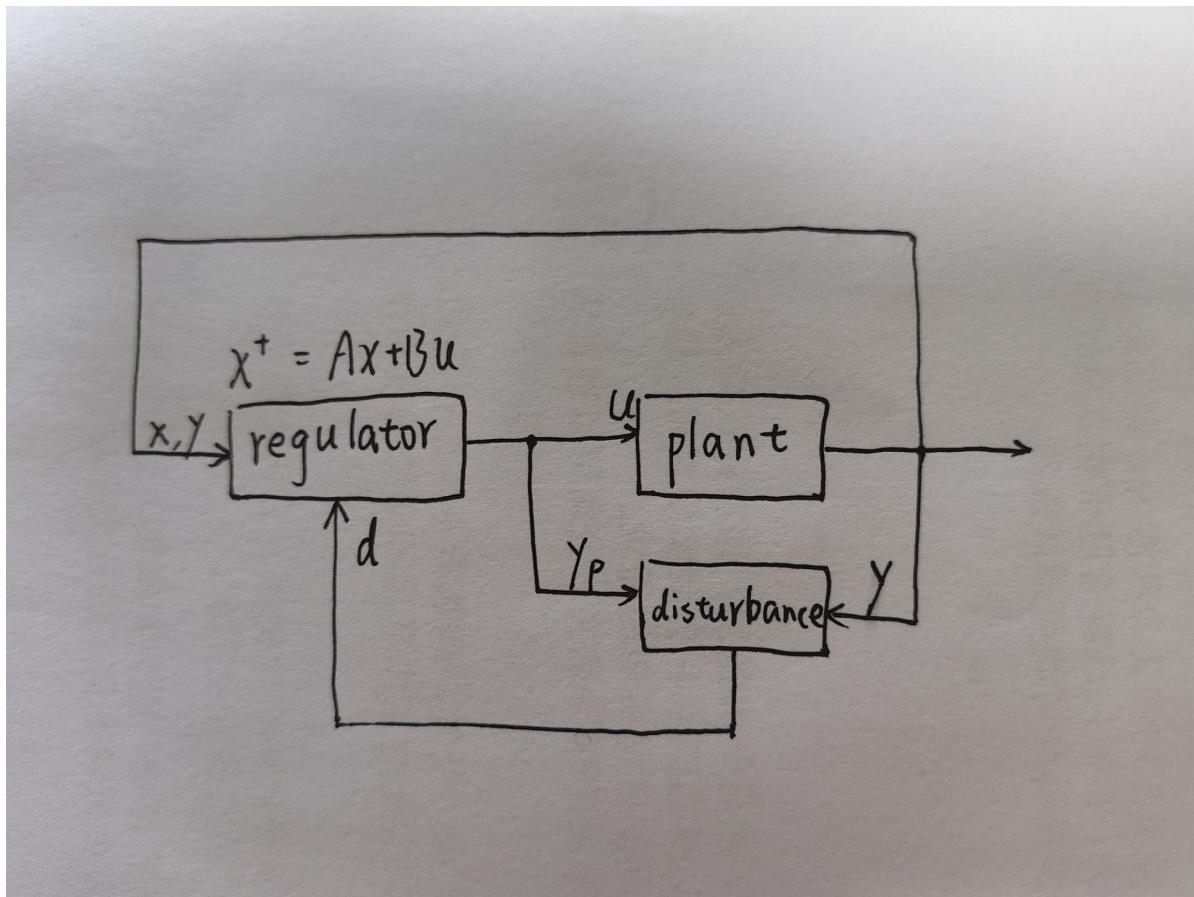 x⁺ = Ax+Bu
x,y
regulator
u
plant
d
yp
disturbance
y